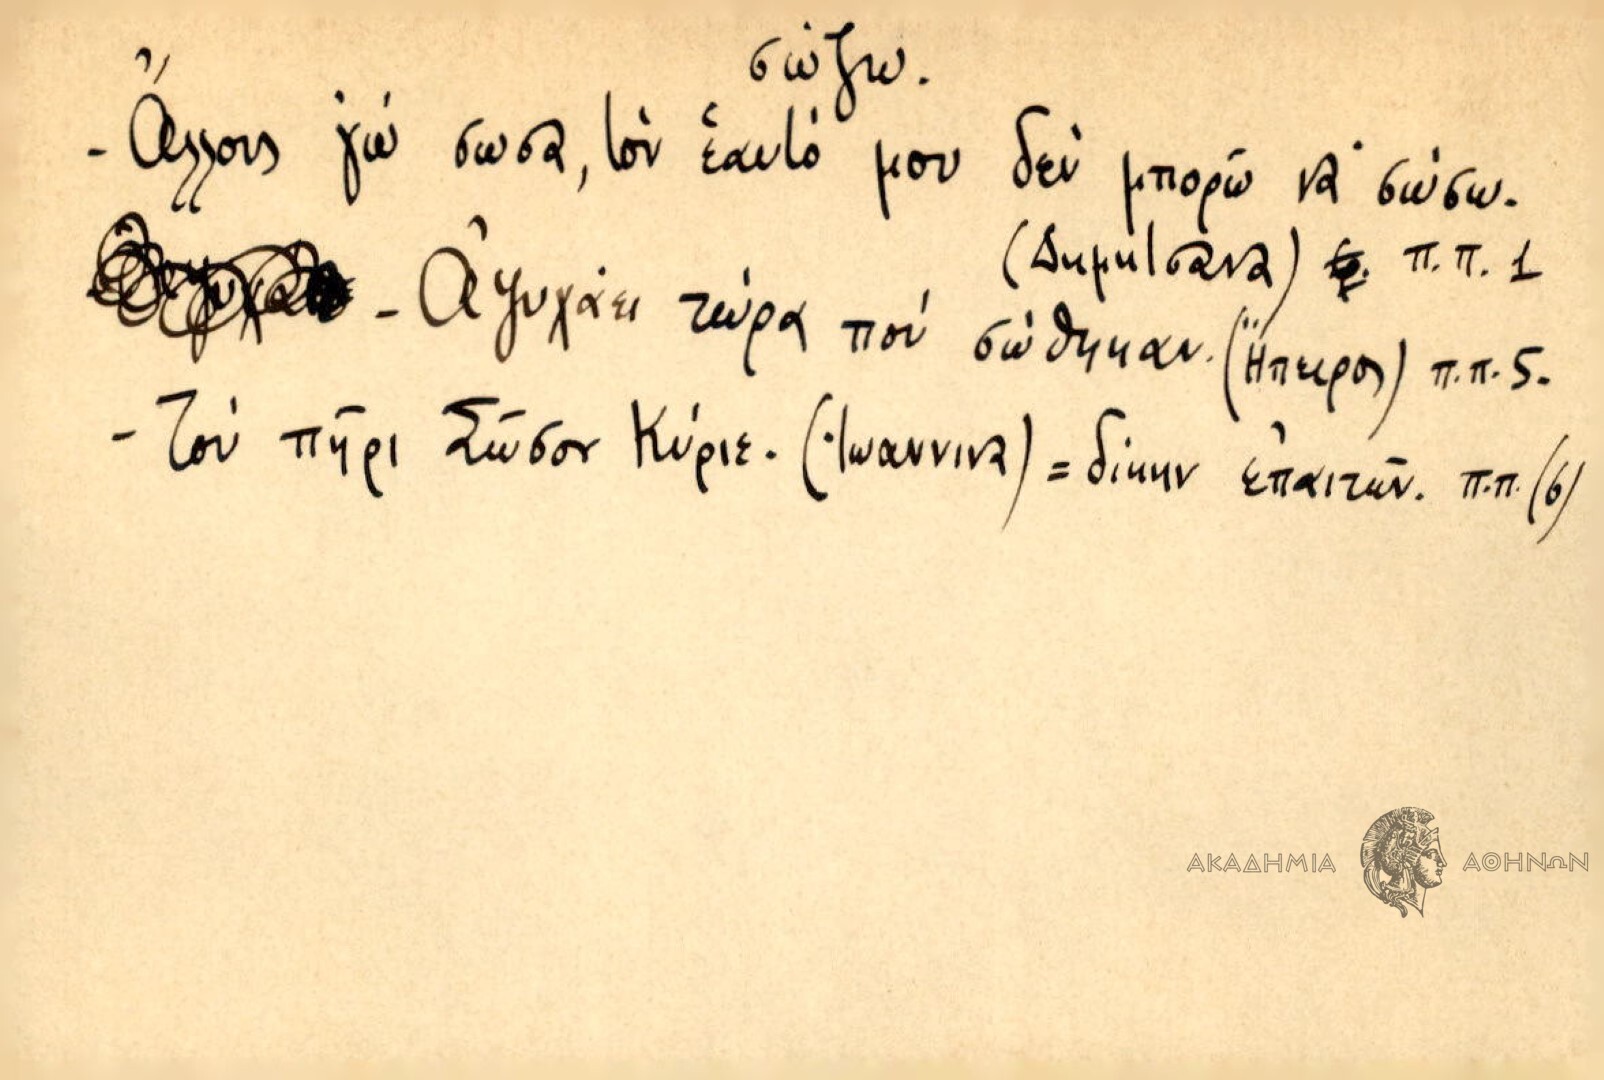 σώζω.
- Ἄλλους γώ σωσα, τόν ἑαυτό μου δέν μπορῶ νά σώσω.
(Δημητσανα) π.π. 1
- Ἀψυχάει τώρα πού σώθηκαν. (Ἤπειρος) π.π. 5.
- Τοῦ πῆρι Σῶσον Κύριε. (Ἰωαννινα) = δίκην ἐπαιτῶν. π.π. (6)
ΑΚΑΔΗΜΙΑ ΑΘΗΝΩΝ